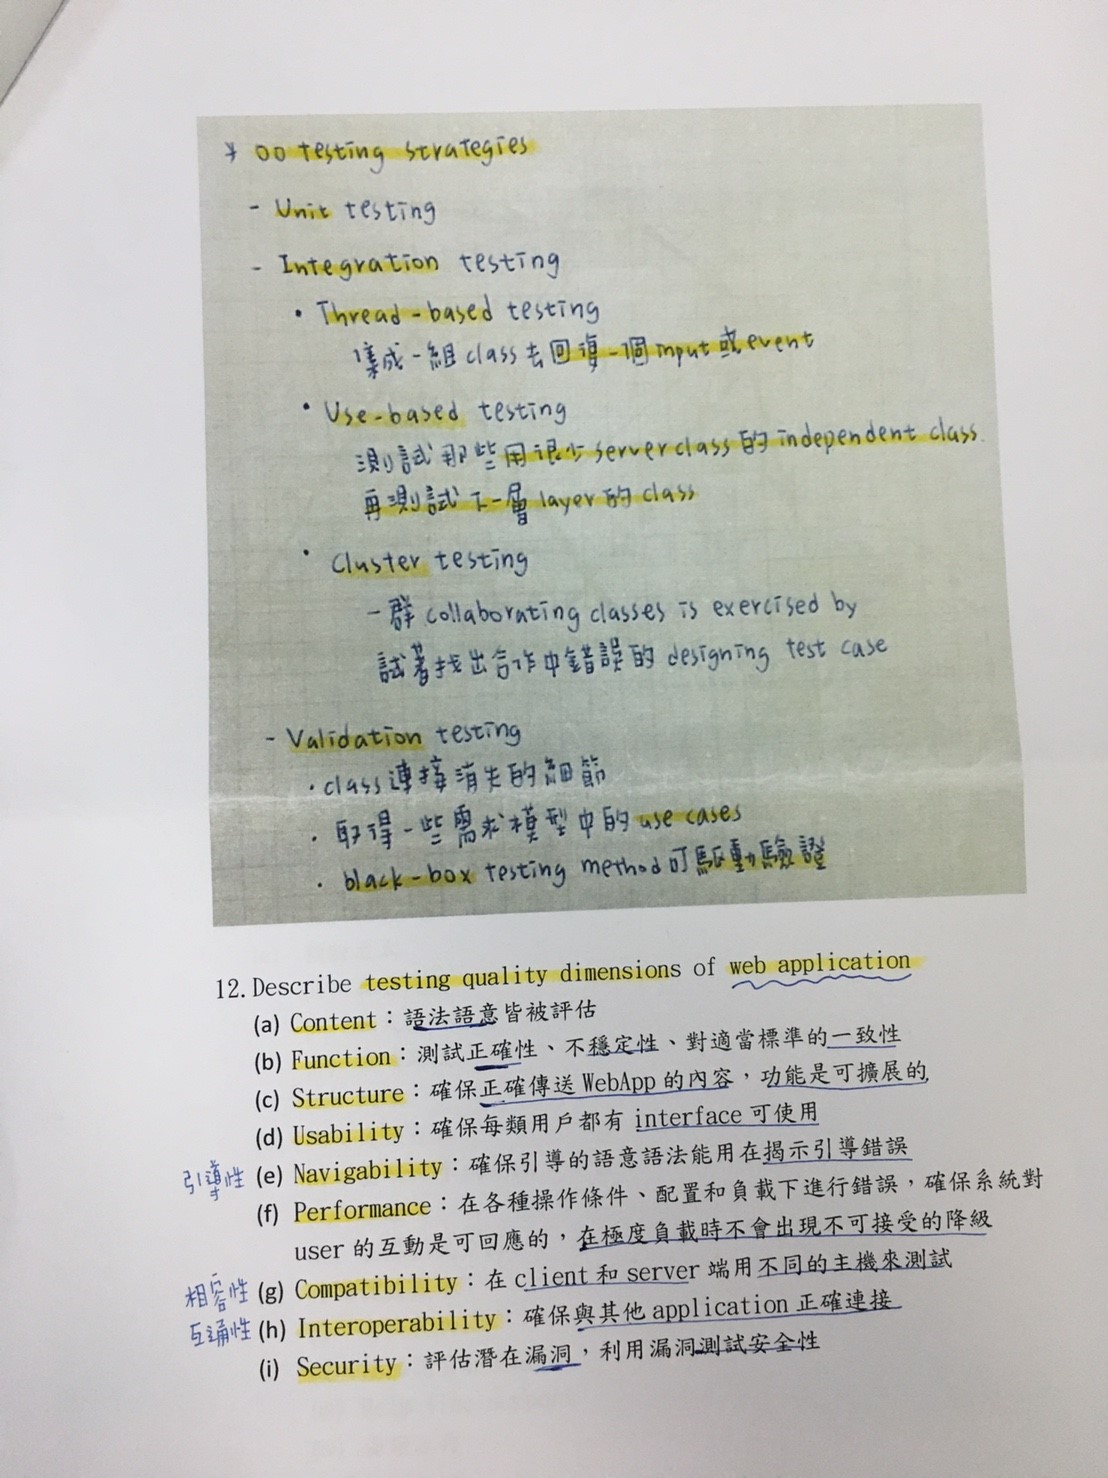 * OO testing strategies
- Unit testing
- Integration testing
• Thread-based testing
集成一組 class 去回復一個 input 或 event
• Use-based testing
測試那些用很少 server class 的 independent class.
再測試下一層 layer 的 class
• Cluster testing
一群 collaborating classes is exercised by
試著找出合作中錯誤的 designing test case
- Validation testing
• class 連接消失的細節
• 取得一些需求模型中的 use cases
• black-box testing method 可驅動驗證
12. Describe testing quality dimensions of web application
(a) Content：語法語意皆被評估
(b) Function：測試正確性、不穩定性、對適當標準的一致性
(c) Structure：確保正確傳送 WebApp 的內容，功能是可擴展的
(d) Usability：確保每類用戶都有 interface 可使用
引導性 (e) Navigability：確保引導的語意語法能用在揭示引導錯誤
(f) Performance：在各種操作條件、配置和負載下進行錯誤，確保系統對
user 的互動是可回應的，在極度負載時不會出現不可接受的降級
相容性 (g) Compatibility：在 client 和 server 端用不同的主機來測試
互通性 (h) Interoperability：確保與其他 application 正確連接
(i) Security：評估潛在漏洞，利用漏洞測試安全性